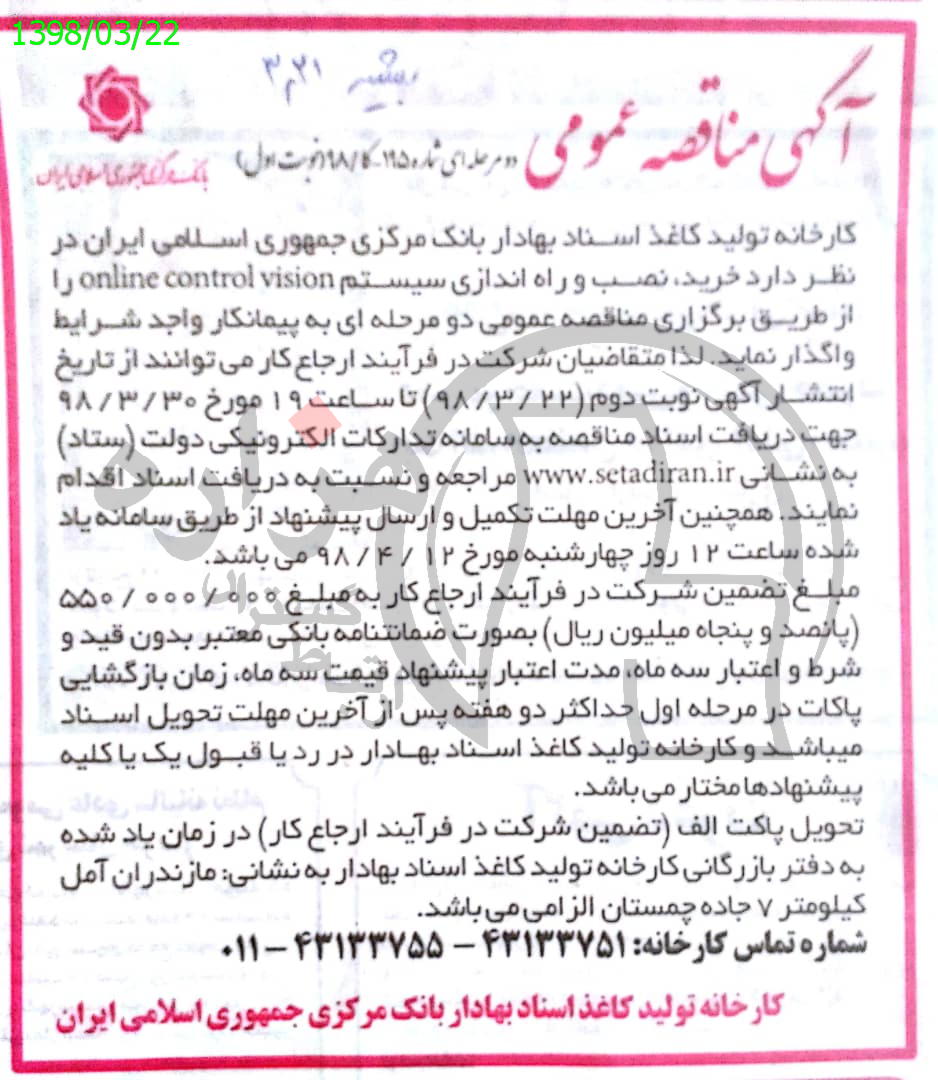 1398/03/22
بشیر ۳٫۲۱
آگهی مناقصه عمومی
دو مرحله ای شماره ۱۱۵-کا/۹۸ (نوبت اول)
بانک مرکزی جمهوری اسلامی ایران
کارخانه تولید کاغذ اسناد بهادار بانک مرکزی جمهوری اسلامی ایران در
نظر دارد خرید، نصب و راه اندازی سیستم online control vision را
از طریق برگزاری مناقصه عمومی دو مرحله ای به پیمانکار واجد شرایط
واگذار نماید. لذا متقاضیان شرکت در فرآیند ارجاع کار می توانند از تاریخ
انتشار آگهی نوبت دوم (۹۸/۳/۲۲) تا ساعت ۱۹ مورخ ۹۸/۳/۳۰
جهت دریافت اسناد مناقصه به سامانه تدارکات الکترونیکی دولت (ستاد)
به نشانی www.setadiran.ir مراجعه و نسبت به دریافت اسناد اقدام
نمایند. همچنین آخرین مهلت تکمیل و ارسال پیشنهاد از طریق سامانه یاد
شده ساعت ۱۲ روز چهارشنبه مورخ ۹۸/۴/۱۲ می باشد.
مبلغ تضمین شرکت در فرآیند ارجاع کار به مبلغ ۵۵۰/۰۰۰/۰۰۰
(پانصد و پنجاه میلیون ریال) بصورت ضمانتنامه بانکی معتبر بدون قید و
شرط و اعتبار سه ماه، مدت اعتبار پیشنهاد قیمت سه ماه، زمان بازگشایی
پاکات در مرحله اول حداکثر دو هفته پس از آخرین مهلت تحویل اسناد
میباشد و کارخانه تولید کاغذ اسناد بهادار در رد یا قبول یک یا کلیه
پیشنهادها مختار می باشد.
تحویل پاکت الف (تضمین شرکت در فرآیند ارجاع کار) در زمان یاد شده
به دفتر بازرگانی کارخانه تولید کاغذ اسناد بهادار به نشانی: مازندران آمل
کیلومتر ۷ جاده چمستان الزامی می باشد.
شماره تماس کارخانه: ۴۳۱۳۳۷۵۱ – ۴۳۱۳۳۷۵۵ – ۰۱۱
کارخانه تولید کاغذ اسناد بهادار بانک مرکزی جمهوری اسلامی ایران
هزاره